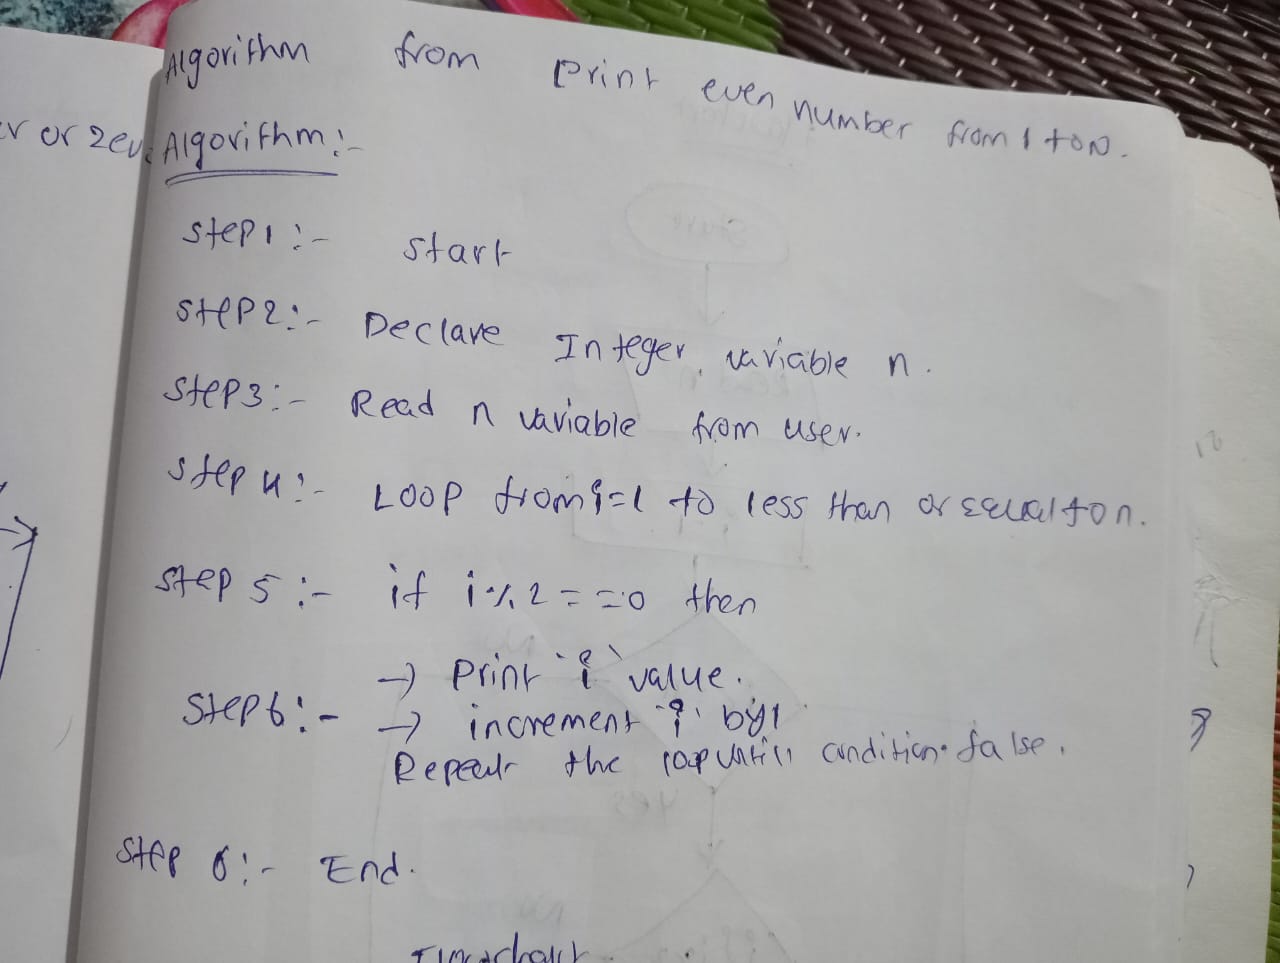 Algorithm from print even number from 1 to N.
er or zero
Algorithm:-
Step1:- Start
Step2:- Declare Integer variable n.
Step3:- Read n variable from user.
Step 4:- Loop from i=1 to less than or equal to n.
Step 5:- if i%2==0 then
→ Print 'i' value.
Step 6:- → increment 'i' by 1
Repeat the loop until condition false.
Step 6:- End.